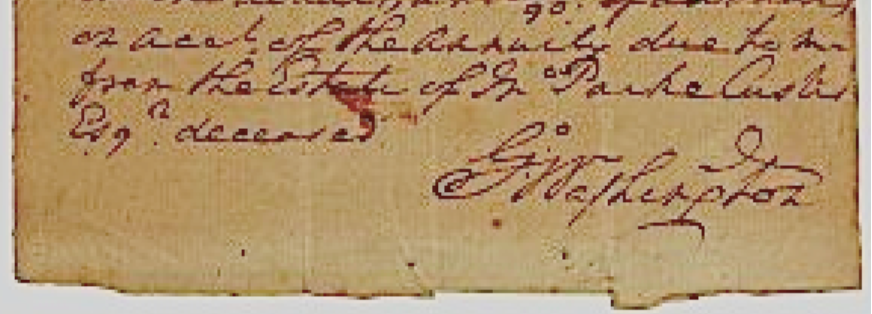 on acct. of the annuity due to me
from the Estate of Jno. Parke Custis
Esqr. deceased
Go. Washington